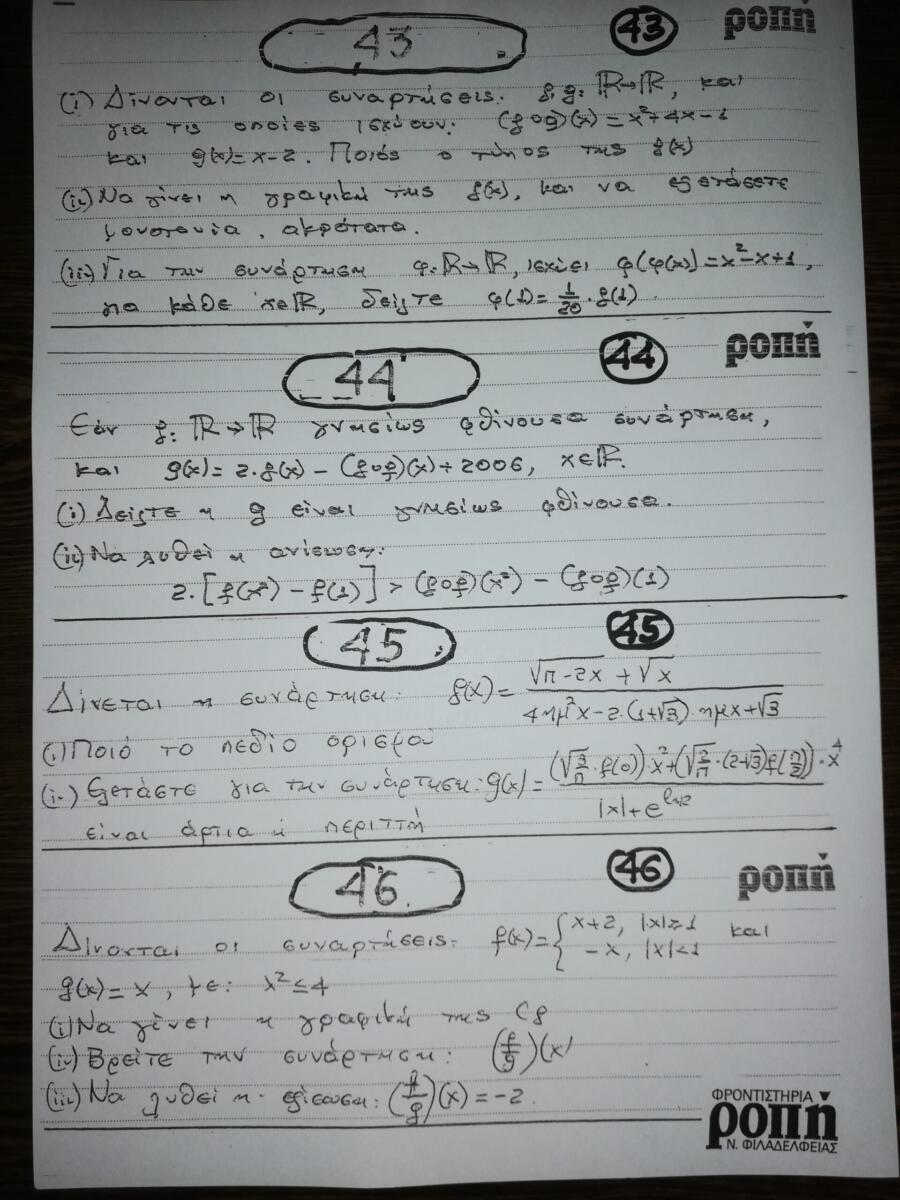 43 43 ροπή
(i) Δίνονται οι συναρτήσεις: f,g: ℝ→ℝ, και
για τις οποίες ισχύουν: (f∘g)(x)=x²+4x-1
και g(x)=x-2. Ποιός ο τύπος της f(x)
(ii) Να γίνει η γραφική της f(x), και να εξετάσετε
μονοτονία, ακρότατα.
(iii) Για την συνάρτηση φ:ℝ→ℝ, ισχύει φ(φ(x))=x²-x+1,
για κάθε x∈ℝ, δείξτε φ(1)=1/20·f(1).
44 44 ροπή
Εάν f: ℝ→ℝ γνησίως φθίνουσα συνάρτηση,
και g(x)=2·f(x)-(f∘f)(x)+2006, x∈ℝ.
(i) Δείξτε η g είναι γνησίως φθίνουσα.
(ii) Να λυθεί η ανίσωση:
2·[f(x²)-f(1)]>(f∘f)(x²)-(f∘f)(1)
45 45
Δίνεται η συνάρτηση: f(x)=(√(π-2x)+√x)/(4ημ²x-2·(1+√3)·ημx+√3)
(i) Ποιό το πεδίο ορισμού
(ii) Εξετάστε για την συνάρτηση: g(x)=((√(3/π)·f(0))·x²+(√(2/π)·(2-√3)f(π/2))·x⁴)/(|x|+e^(ln2))
είναι άρτια ή περιττή
46 46 ροπή
Δίνονται οι συναρτήσεις: f(x)={x+2, |x|≥1 και
-x, |x|<1
g(x)=x, με: x²≤4
(i) Να γίνει η γραφική της Cf
(ii) Βρείτε την συνάρτηση: (f/g)(x)
(iii) Να λυθεί η εξίσωση: (f/g)(x)=-2.
ΦΡΟΝΤΙΣΤΗΡΙΑ
ροπή
Ν. ΦΙΛΑΔΕΛΦΕΙΑΣ